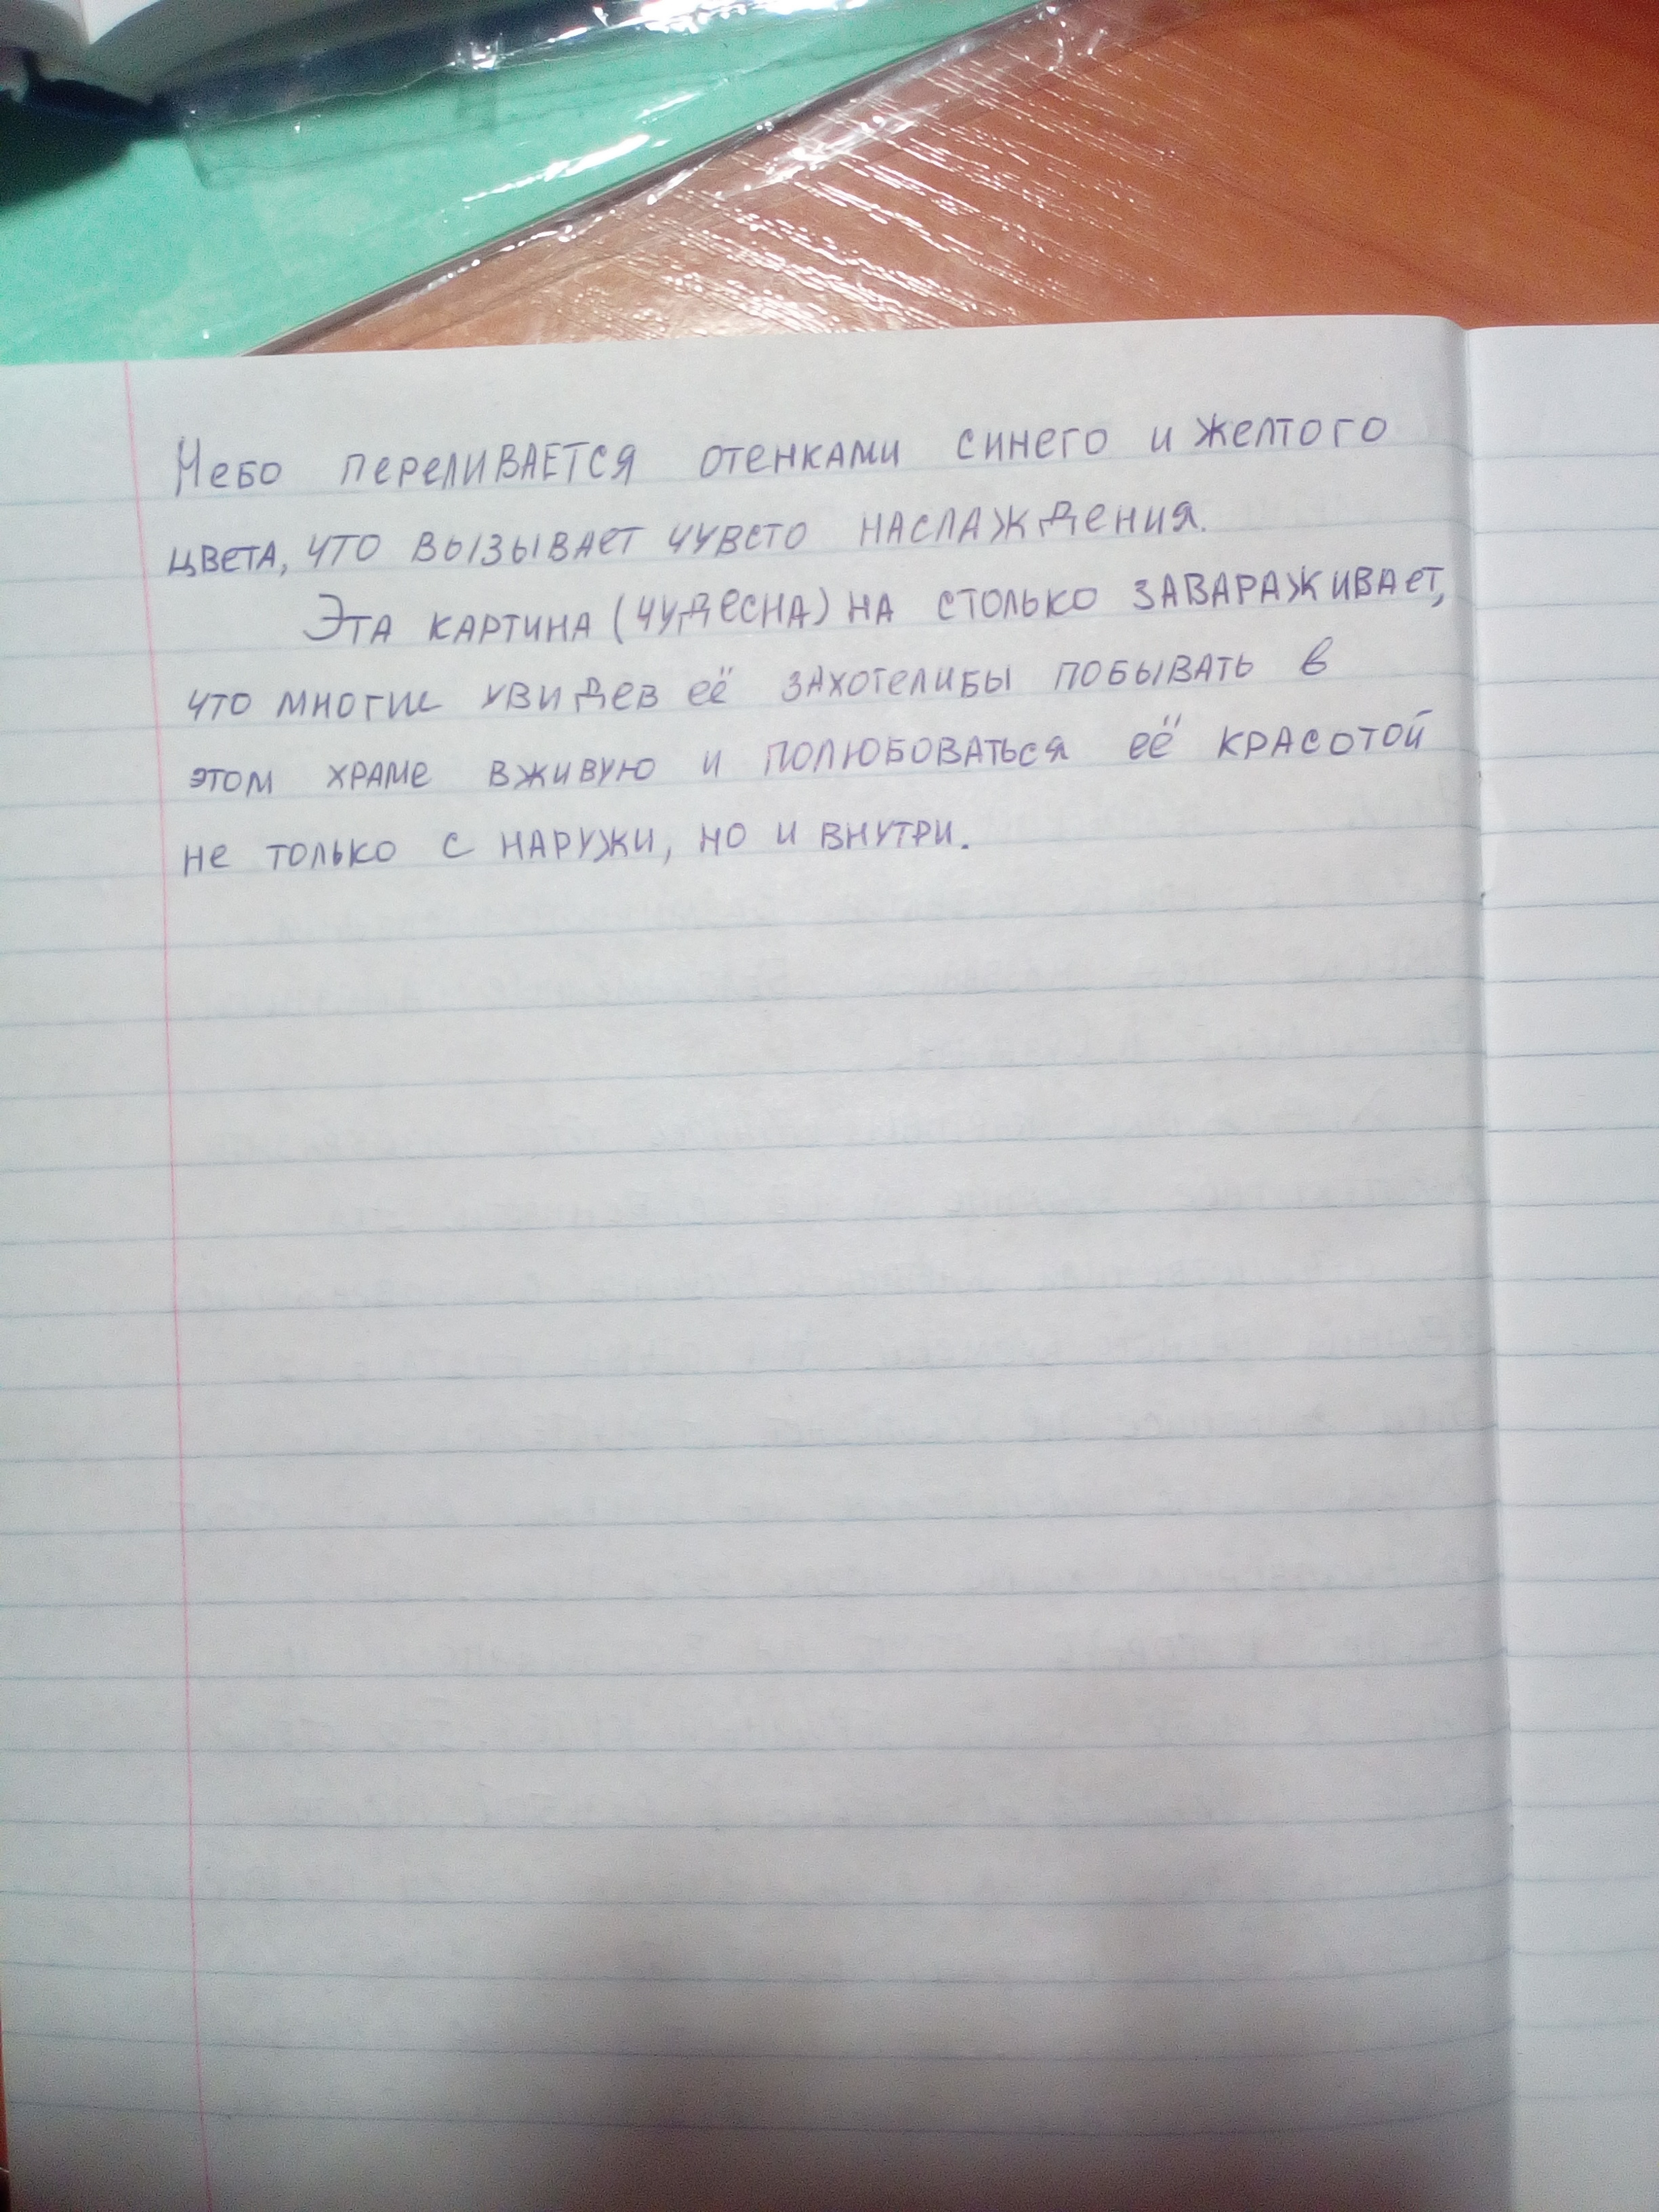 Небо переливается отенками синего и желтого
цвета, что вызывает чувсто наслаждения.
Эта картина (чудесна) на столько завараживает,
что многие увидев её захотелибы побывать в
этом храме вживую и полюбоваться её красотой
не только с наружи, но и внутри.